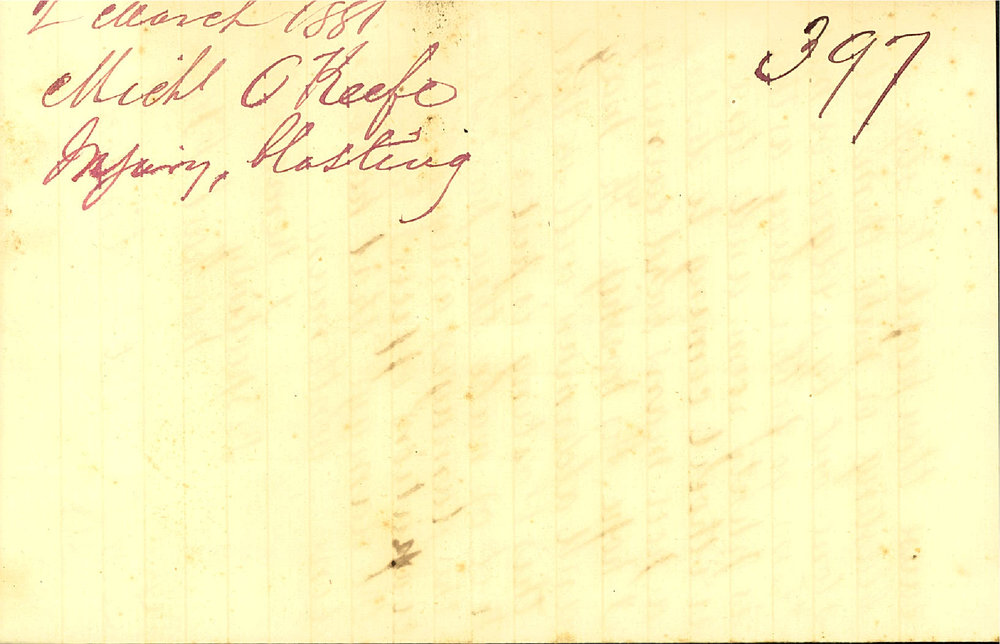 2 March 1881
Michl O Keefe
Injury, blasting
397